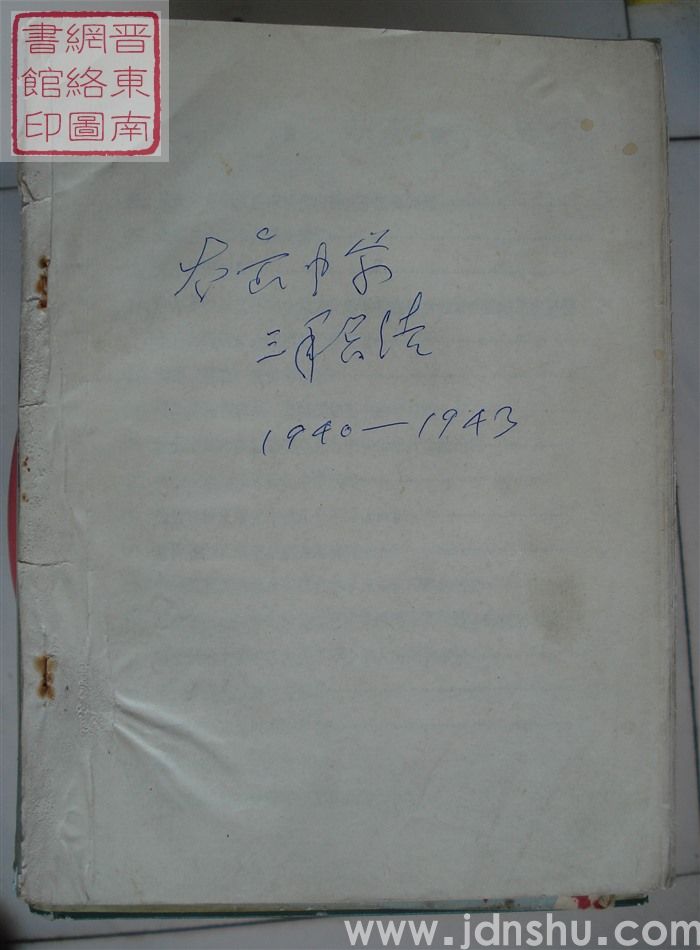 晋東南
網絡圖
書館印
太岳中学
三年总结
1940—1943
www.jdnshu.com